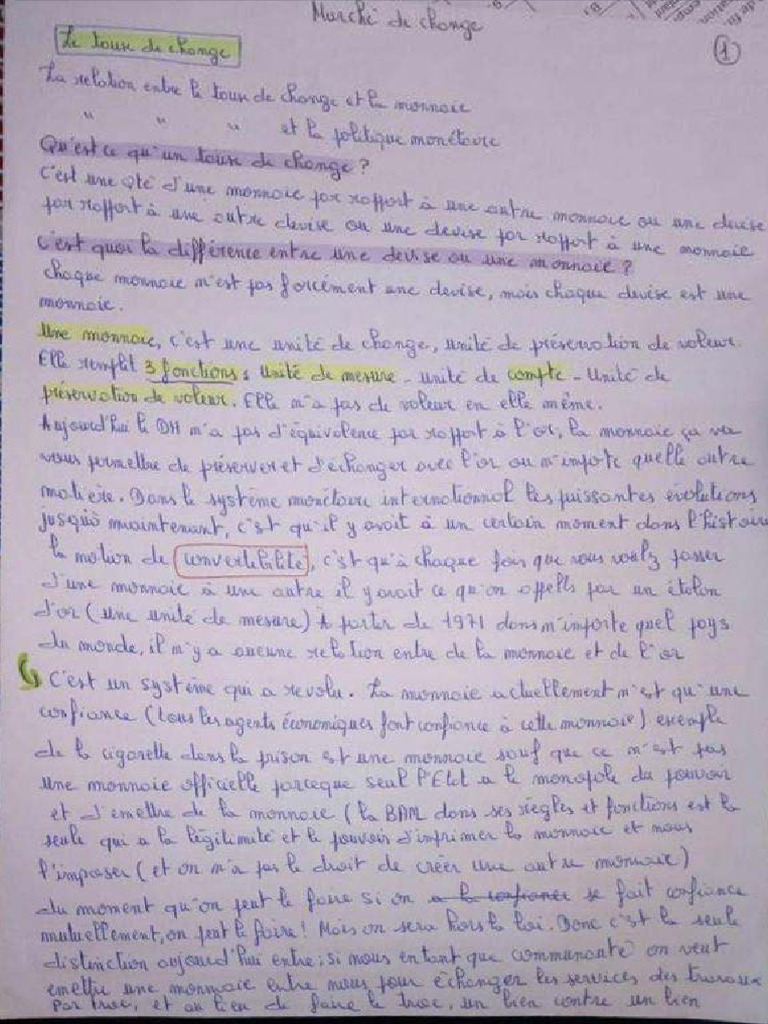 Marché de change
1
Le taux de change
La relation entre le taux de change et la monnaie
" " " et la politique monétaire
Qu'est ce qu'un taux de change ?
C'est une qté d'une monnaie par rapport à une autre monnaie ou une devise
par rapport à une autre devise ou une devise par rapport à une monnaie
C'est quoi la différence entre une devise ou une monnaie ?
chaque monnaie n'est pas forcément une devise, mais chaque devise est une
monnaie.
Une monnaie, c'est une unité de change, unité de préservation de valeur.
Elle remplit 3 fonctions : Unité de mesure - unité de compte - Unité de
préservation de valeur. Elle n'a pas de valeur en elle même.
Aujourd'hui le DH n'a pas d'équivalence par rapport à l'or, la monnaie ça va
vous permettre de préserver et d'échanger avec l'or ou n'importe quelle autre
matière. Dans le système monétaire international les puissantes évolutions
jusqu'à maintenant, c'est qu'il y avait à un certain moment dans l'histoire
la notion de convertibilité, c'est qu'à chaque fois que vous voulez passer
d'une monnaie à une autre il y avait ce qu'on appelle par un étalon
d'or (une unité de mesure) À partir de 1971 dans n'importe quel pays
du monde, il n'y a aucune relation entre de la monnaie et de l'or
C'est un système qui a revolu. La monnaie actuellement n'est qu'une
confiance (tous les agents économiques font confiance à cette monnaie) exemple
de la cigarette dans la prison est une monnaie sauf que ce n'est pas
une monnaie officielle parceque seul l'Etat a le monopole du pouvoir
et d'émettre de la monnaie (la BAM dans ses règles et fonctions est la
seule qui a la légitimité et le pouvoir d'imprimer la monnaie et nous
l'imposer (et on n'a pas le droit de créer une autre monnaie)
du moment qu'on peut le faire si on se fait confiance
mutuellement, on peut le faire ! Mais on sera hors la loi. Donc c'est la seule
distinction aujourd'hui entre ; si nous en tant que communauté on veut
emettre une monnaie entre nous pour échanger les services des travaux
par troc, et au lieu de faire le troc, un bien contre un bien